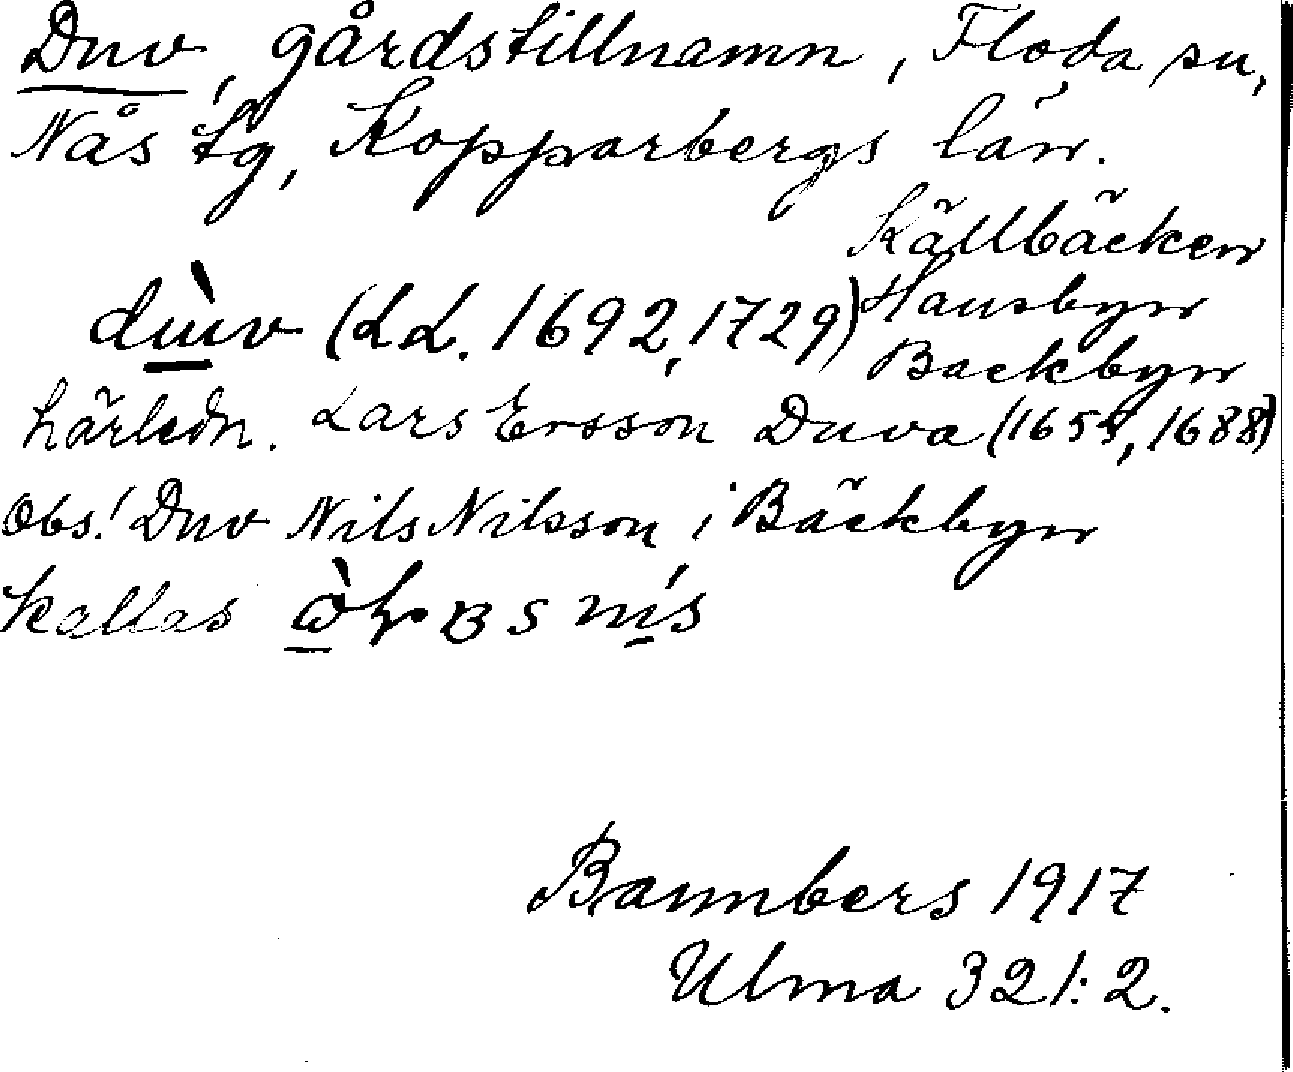 Duv, gårdstillnamn, Floda sn,
Nås tg, Kopparbergs län.
Källbäcken
Hansbyn
dùv (LL. 1692, 1729)
Backbyn
härledn. Lars Ersson Duva (1654, 1688)
Obs! Duv Nils Nilsson i Bäckbyn
kallas
Bannbers 1917
Ulma 321:2.